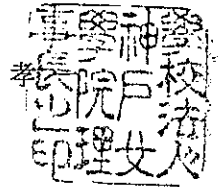 學校法人
神戶女
學院理
事長之印
孝